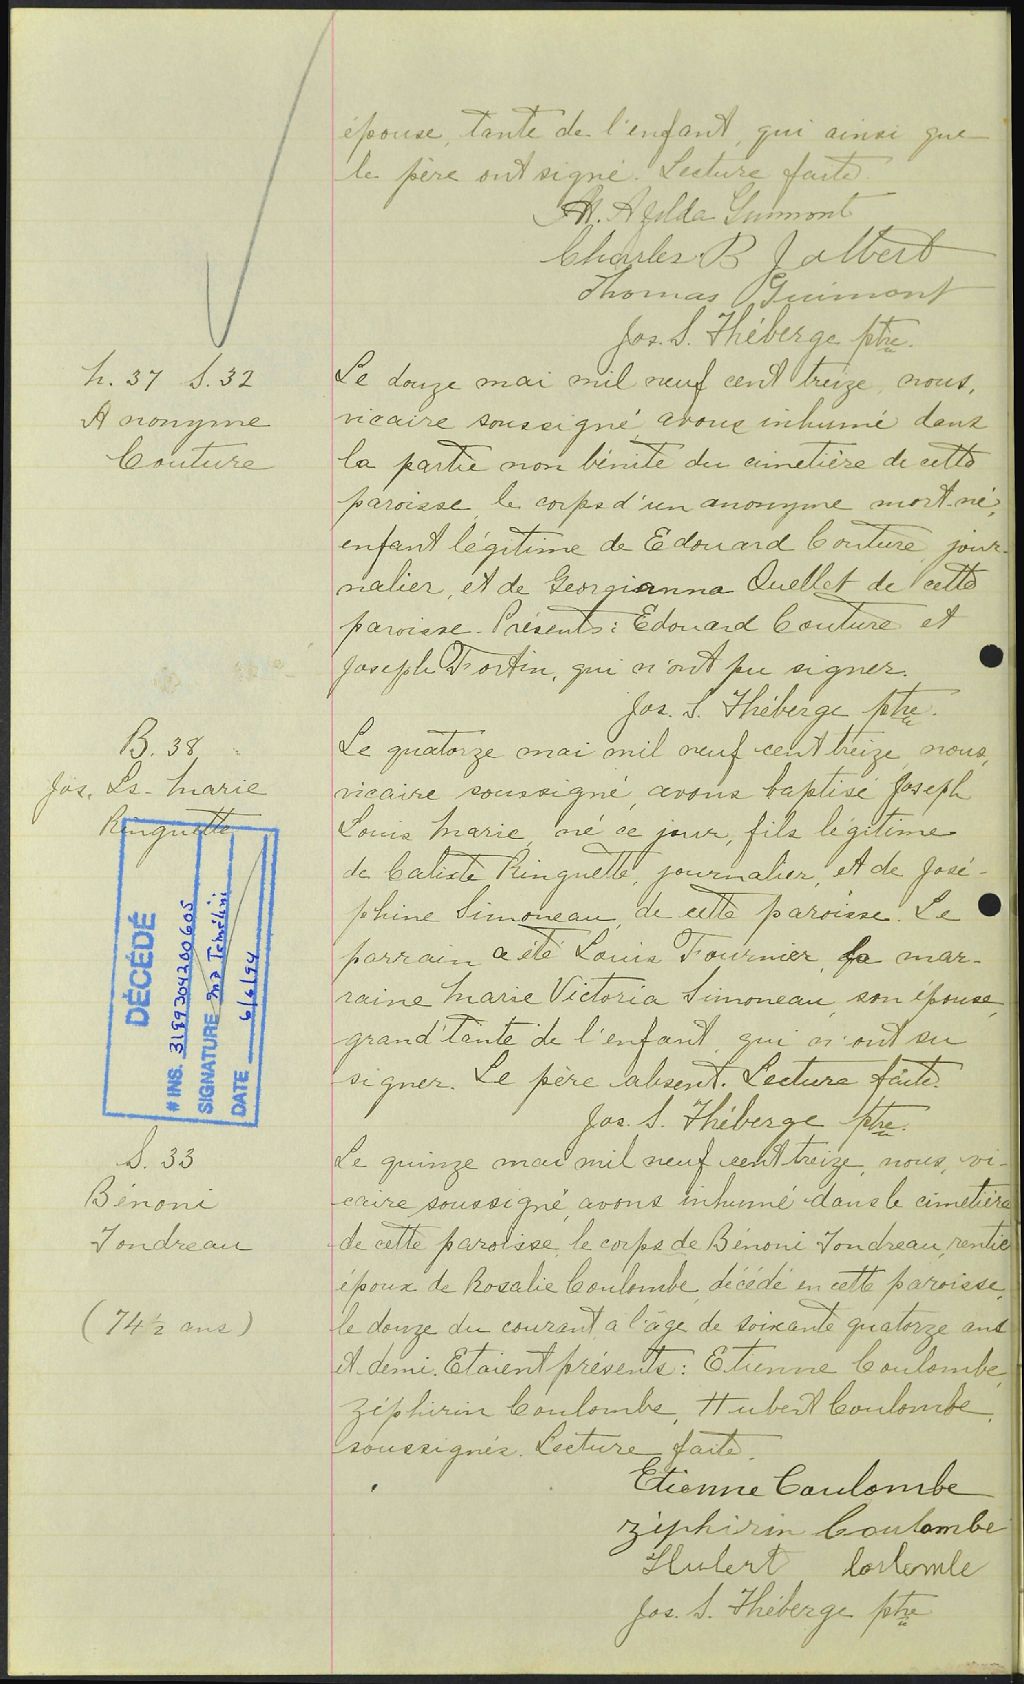 épouse, tante de l'enfant, qui ainsi que
le père ont signé. Lecture faite.
Guimont
Charles B Jalbert
Thomas Guimont
Jos. S. Théberge ptre.
h. 37 S. 32
Anonyme
Couture
Le douze mai mil neuf cent treize, nous,
vicaire soussigné, avons inhumé dans
la partie non bénite du cimetière de cette
paroisse, le corps d'un anonyme mort-né,
enfant légitime de Edouard Couture, jour-
nalier, et de Georgianna Ouellet de cette
paroisse. Présents: Edouard Couture et
Joseph Fortin, qui n'ont pu signer.
Jos. S. Théberge ptre.
B. 38
Jos. Ls- Marie
Ringuette
Le quatorze mai mil neuf cent treize, nous,
vicaire soussigné, avons baptisé Joseph
Louis Marie, né ce jour, fils légitime
de Calixte Ringuette, journalier, et de José-
phine Simoneau, de cette paroisse. Le
parrain a été Louis Fournier, la mar-
raine Marie Victoria Simoneau, son épouse,
grand'tante de l'enfant, qui n'ont su
signer. Le père absent. Lecture faite.
Jos. S. Théberge ptre.
DÉCÉDÉ
# INS. 3189304200605
SIGNATURE
DATE 6/6/94
S. 33
Bénoni
Tondreau
(74½ ans)
Le quinze mai mil neuf cent treize, nous, vi-
caire soussigné, avons inhumé dans le cimetière
de cette paroisse, le corps de Bénoni Tondreau, rentier
époux de Rosalie Coulombe, décédé en cette paroisse,
le douze du courant, a l'âge de soixante quatorze ans
et demi. Etaient présents: Etienne Coulombe,
Zéphirin Coulombe, Hubert Coulombe,
soussignés. Lecture faite.
Etienne Coulombe
Zéphirin Coulombe
Hubert Colombe
Jos. S. Théberge ptre